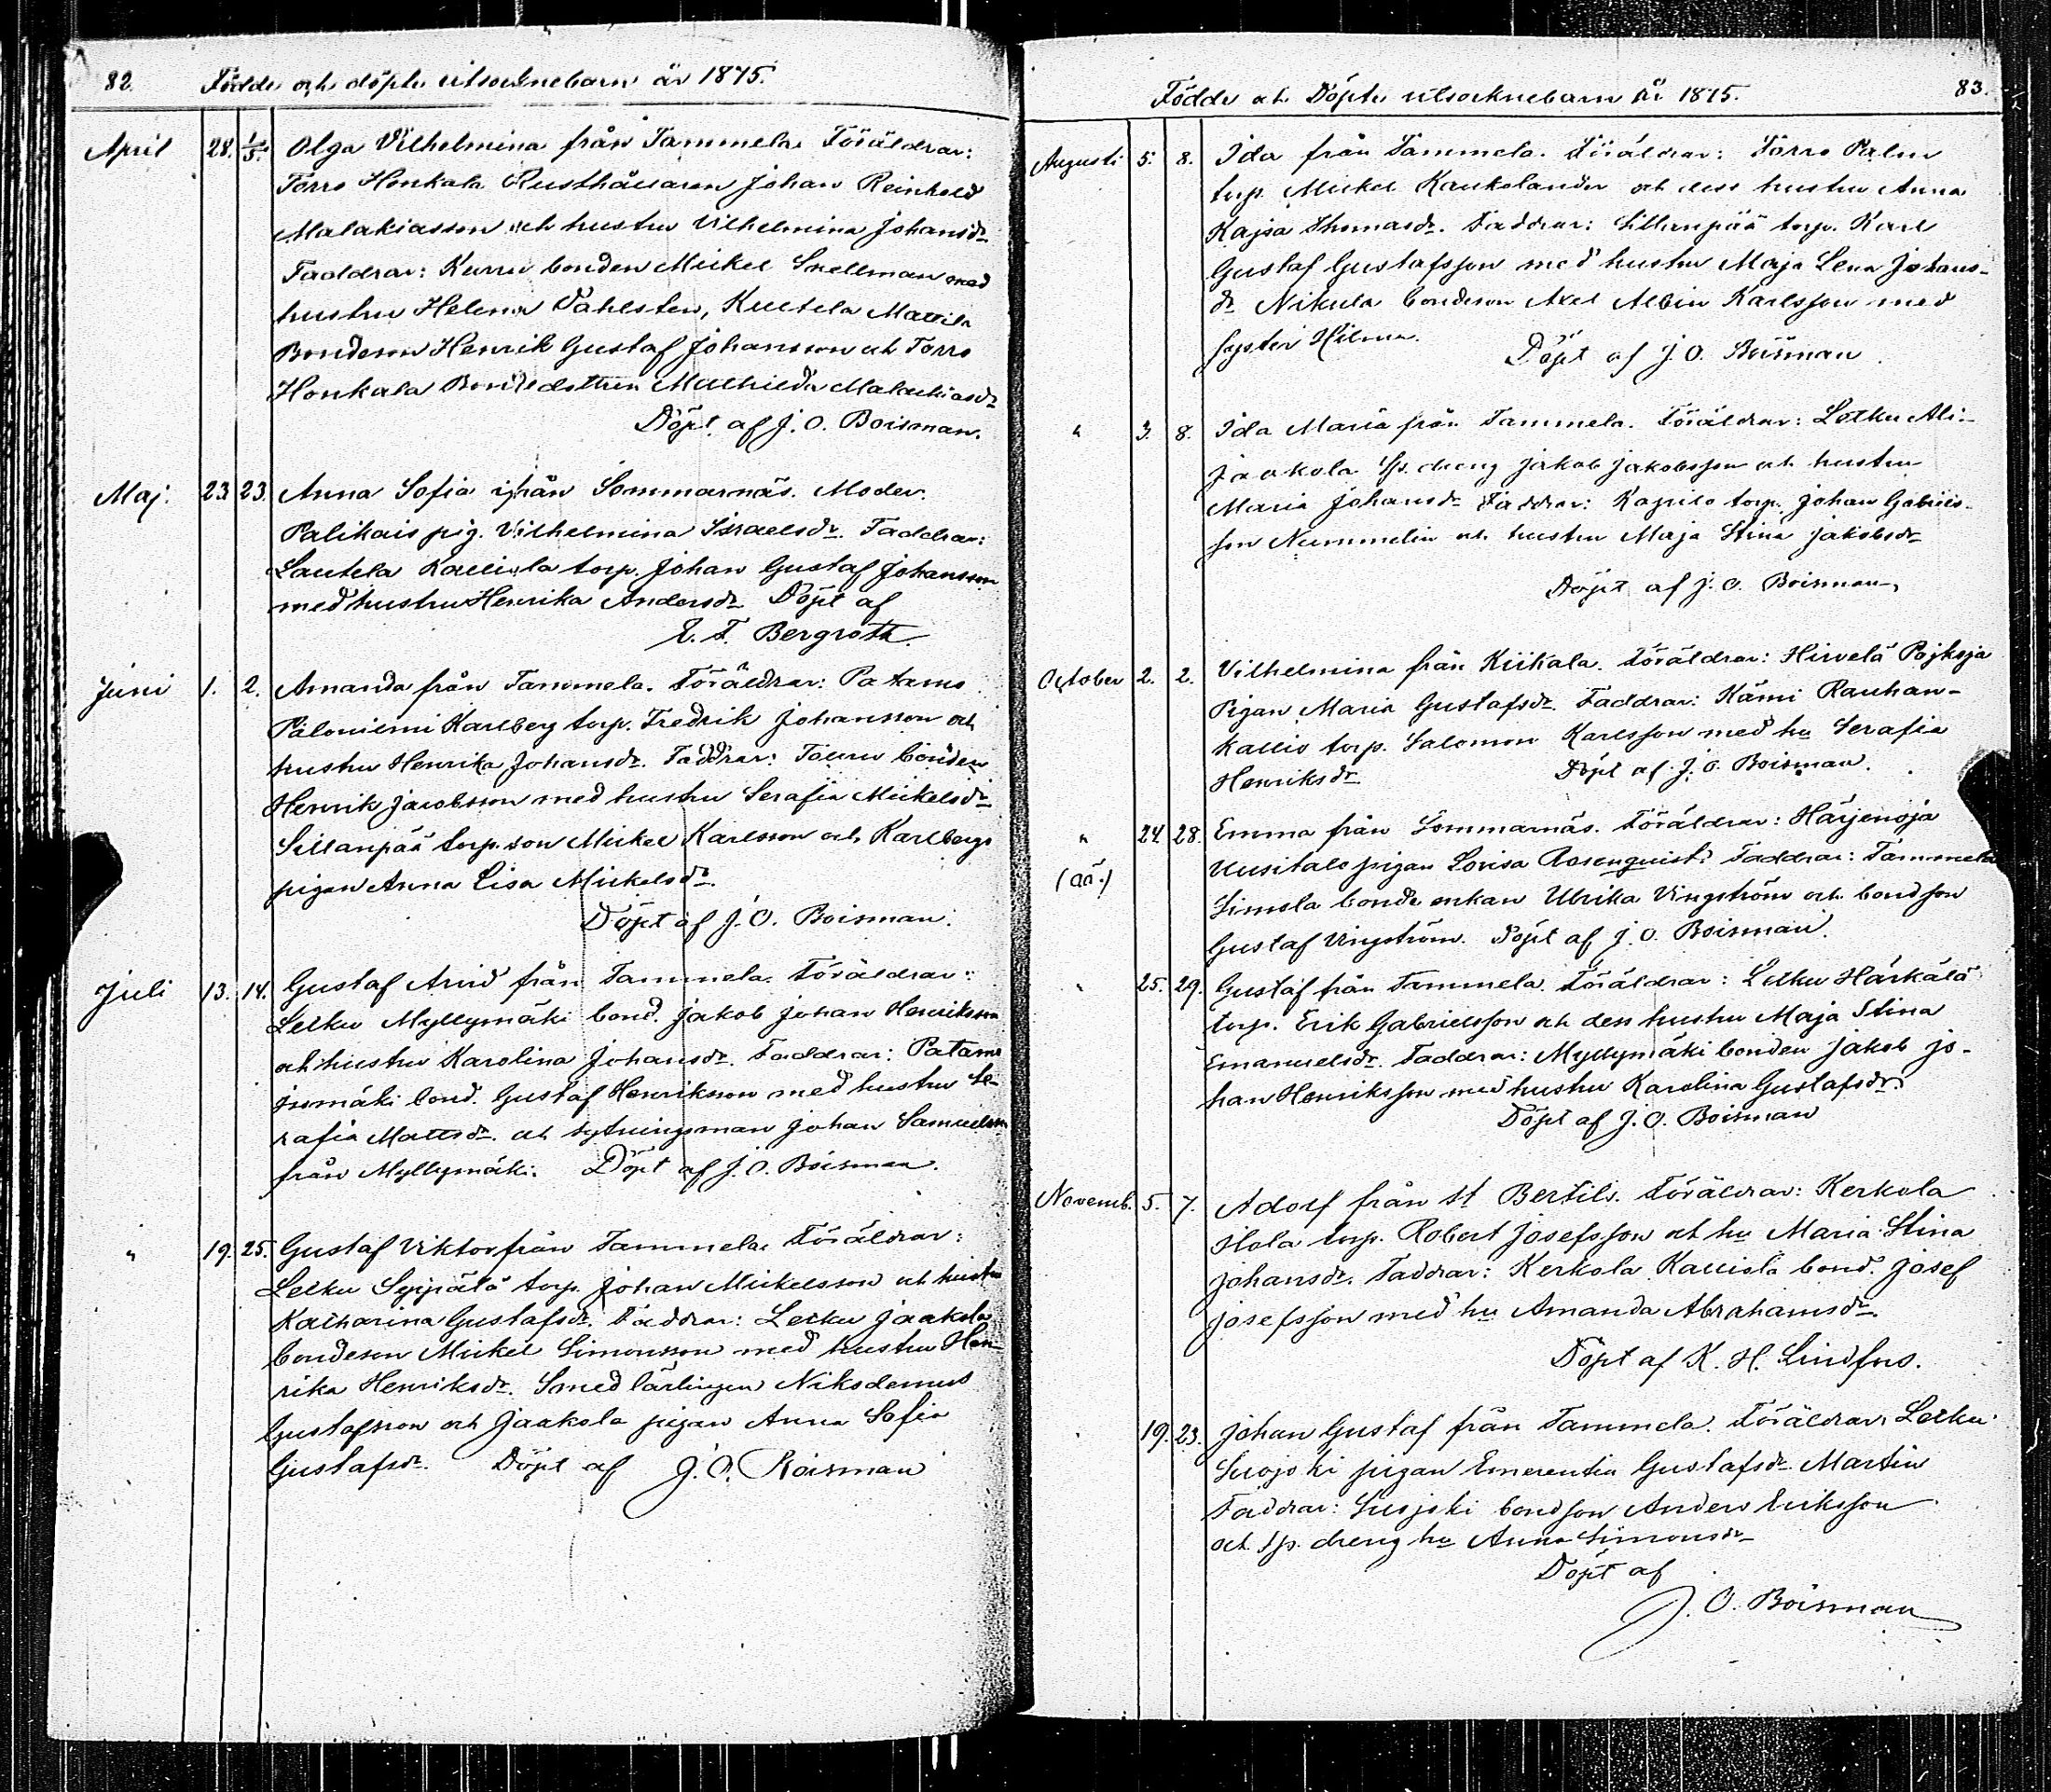 82. Födde och döpte utsocknebarn år 1875.
April 28. 1/5. Olga Vilhelmina från Tammela. Föräldrar:
Torro Honkala Rusthållaren Johan Reinhold
Malakiasson och hustru Vilhelmina Johansdr
Faddrar: Kurru bonden Mickel Snellman med
hustru Helena Dahlsten, Kultela Mattila
Bondeson Henrik Gustaf Johansson och Torro
Honkala Bondedottren Mathilda Malakiasdr
Döpt af J. O. Boisman.
Maj. 23 23. Anna Sofia ifrån Sommarnäs. Moder.
Palikais pig. Vilhelmina Israelsdr. Faddrar:
Lautela Kalliala torp. Johan Gustaf Johansson
med hustru Henrika Andersdr Döpt af
E. F. Bergroth.
Juni 1. 2. Amanda från Tammela. Föräldrar: Patamo
Päloniemi Karlberg torp. Fredrik Johansson och
hustru Henrika Johansdr. Faddrar: Touru bonden
Henrik Jacobsson med hustru Serafia Mickelsdr
Sillanpää torp. son Mickel Karlsson och Karlbergs
pigan Anna Lisa Mickelsdr.
Döpt af J. O. Boisman.
Juli 13. 14. Gustaf Arvid från Tammela. Föräldrar:
Letku Myllymäki bond. Jakob Johan Henriksson
och hustru Karolina Johansdr. Faddrar: Patamo
Isomäki bond. Gustaf Henriksson med hustru Se-
rafia Mattsdr. och sytningsman Johan Samuelsson
från Myllymäki. Döpt af J. O. Boisman.
" 19. 25. Gustaf Viktor från Tammela. Föräldrar:
Letku Seppälä torp. Johan Mickelsson och hustru
Katharina Gustafsdr. Faddrar: Letku Jaakola
bondeson Mickel Simonsson med hustru Hen-
rika Henriksdr. Smedlärlingen Nikodemus
Gustafsson och Jaakola pigan Anna Sofia
Gustafsdr. Döpt af J. O. Boisman
Födde och Döpte utsocknebarn år 1875. 83.
Augusti 5. 8. Ida från Tammela. Föräldrar: Torro Palm
torp. Mickel Kaukolander och dess hustru Anna
Kajsa Thomasdr. Faddrar: Sillanpää torp. Karl
Gustaf Gustafsson med hustru Maja Lena Johans-
dr Nikula bondeson Axel Albin Karlsson med
syster Hilma. Döpt af J. O. Boisman.
" 3. 8. Ida Maria från Tammela. Föräldrar: Letku Ali-
Jaakola Sp. dreng Jakob Jakobsson och hustru
Maria Johansdr Faddrar: torp. Johan Gabriels-
son Nummelin och hustru Maja Stina Jakobsdr
Döpt af J. O. Boisman.
October 2. 2. Vilhelmina från Kiikala. Föräldrar: Hirvelä Pojksja
Pigan Maria Gustafsdr. Faddrar: Kämi Rauhan-
kallio torp. Salomon Karlsson med hu Serafia
Henriksdr Döpt af J. O. Boisman.
" (aä.) 24. 28. Emma från Sommarnäs. Föräldrar: Härjenoja
Uusitalo pigan Lovisa Rosenquist. Faddrar: Tammela
Simola bonde enkan Ulrika Vingström och bondson
Gustaf Vingström. Döpt af J. O. Boisman.
" 25. 29. Gustaf från Tammela. Föräldrar: Letku Härkälä
torp. Erik Gabrielsson och dess hustru Maja Stina
Emanuelsdr. Faddrar: Myllymäki bonden Jakob Jo-
han Henriksson med hustru Karolina Gustafsdr.
Döpt af J. O. Boisman
Novemb. 5. 7. Adolf från St Bertils. Föräldrar: Kerkola
Hola torp. Robert Josefsson och hu Maria Stina
Johansdr. Faddrar: Kerkola Kalliola bond. Josef
Josefsson med hu Amanda Abrahamsdr.
Döpt af K. H. Lindfors.
" 19. 23. Johan Gustaf från Tammela. Föräldrar: Letku
Suojoki pigan Emerentia Gustafsdr Martin
Faddrar: Suojoki bondson Anders Eriksson
och Sp. dreng hu Anna Simonsdr
Döpt af
J. O. Boisman